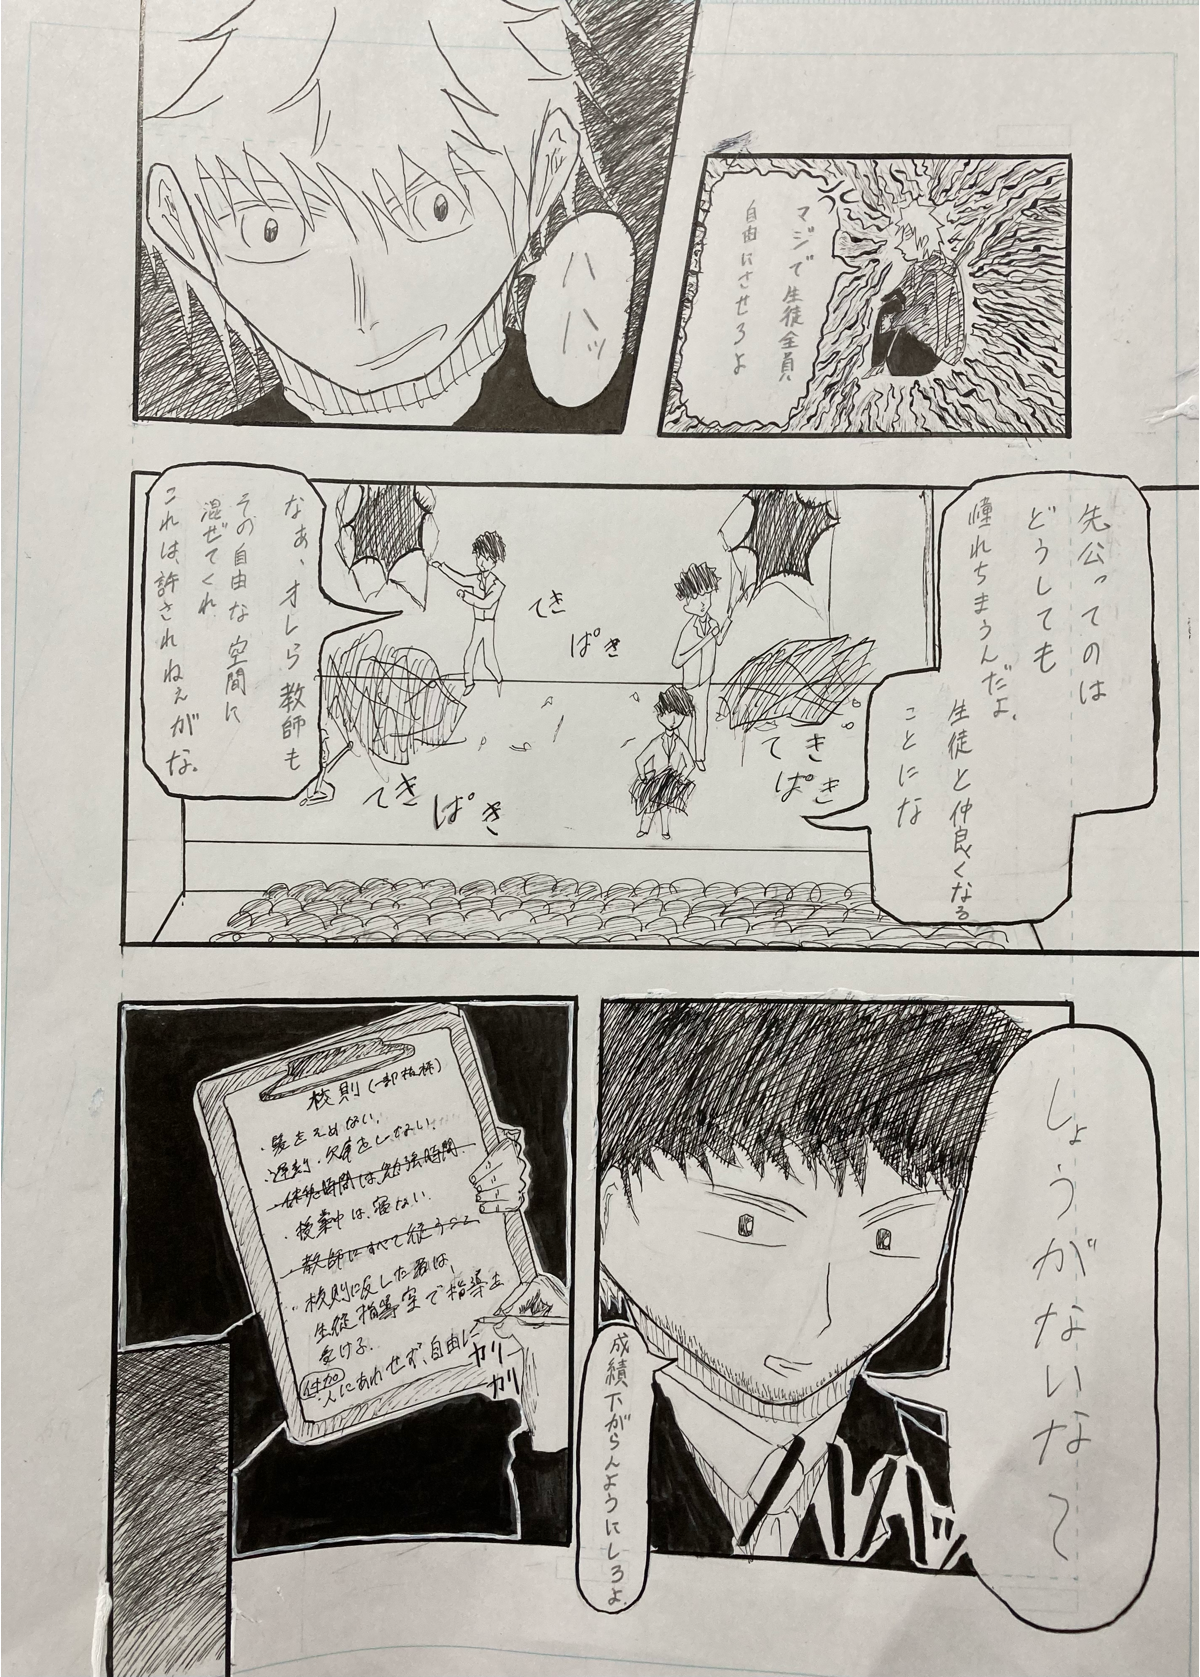 マジで生徒全員
自由にさせろよ
ハハハッ
先公ってのは
どうしても
憧れちまうんだよ、
生徒と仲良くなる
ことにな
なぁ、オレら教師も
その自由な空間に
混ぜてくれ
これは、許されねぇがな。
てき
ぱき
てき
ぱき
てき
ぱき
しょうがないなて
バババッ
成績下がらんようにしろよ
校則(一部抜粋)
・髪をそめない.
・遅刻・欠席をしない.
・休憩時間は勉強時間.
・授業中は、寝ない.
・教師はすべて従うこと
・校則に反した者は、
生徒指導室で指導を
受ける.
付加
人にあわせず、自由に
カリ
カリ